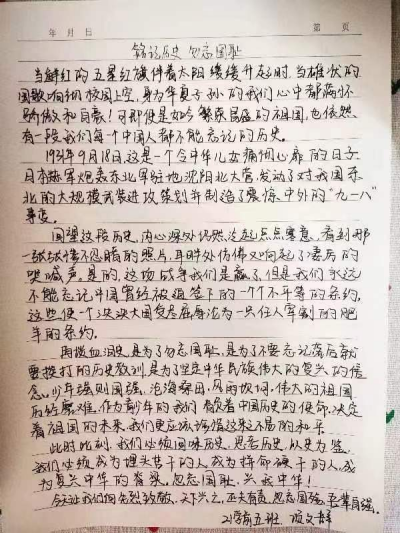 年 月 日 第 页
铭记历史 勿忘国耻
当鲜红的五星红旗伴着太阳缓缓升起时,当雄伟的
国歌响彻祖国上空,身为华夏子孙的我们心中都满怀
骄傲和自豪!可即便是如今繁荣昌盛的祖国,也依然
有一段我们每一个中国人都不能忘记的历史。
1931年9月18日,这是一个令中华儿女痛彻心扉的日子
日本 军炮轰东北军驻地沈阳北大营,发动了对我国东
北的大规模武装进攻策划并制造了震惊中外的“九一八”
事变。
回望这段历史,内心深处仍然泛起点点寒意,看到那
一张张惨不忍睹的照片,耳畔处仿佛又响起了凄厉的
哭喊声。是的,这场战争我们是赢了,但是我们永远
不能忘记,中国曾经被迫签下的一个个不平等的条约。
这些使一个泱泱大国变为 一只任人宰割的肥
羊的条约。
再提血泪史,是为了勿忘国耻,是为了不要忘记落后就
要挨打的历史教训,是为了坚定中华民族伟大的复兴的信
念。少年强则国强,沧海桑田,风雨坎坷,伟大的祖国
历经磨难,作为 少年的我们 着中国历史的使命,决定
着祖国的未来,我们更应该珍惜这来之不易的和平
此时此刻,我们必须回味历史,思考历史,以史为鉴
我们必须成为埋头苦干的人,成为拼命硬干的人,成
为复兴中华的脊梁,勿忘国耻,兴我中华!
今天让我们向先烈致敬,天下兴亡,匹夫有责,勿忘国耻,吾辈自强。
2 五班